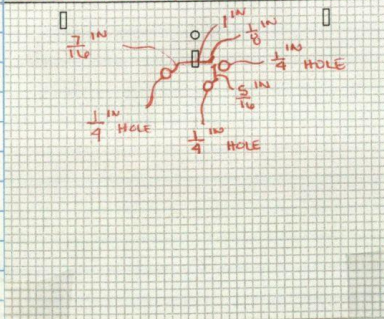 7/16 IN
1 IN
1/8
1/4 IN HOLE
5/16 IN
1/4 IN HOLE
1/4 IN HOLE